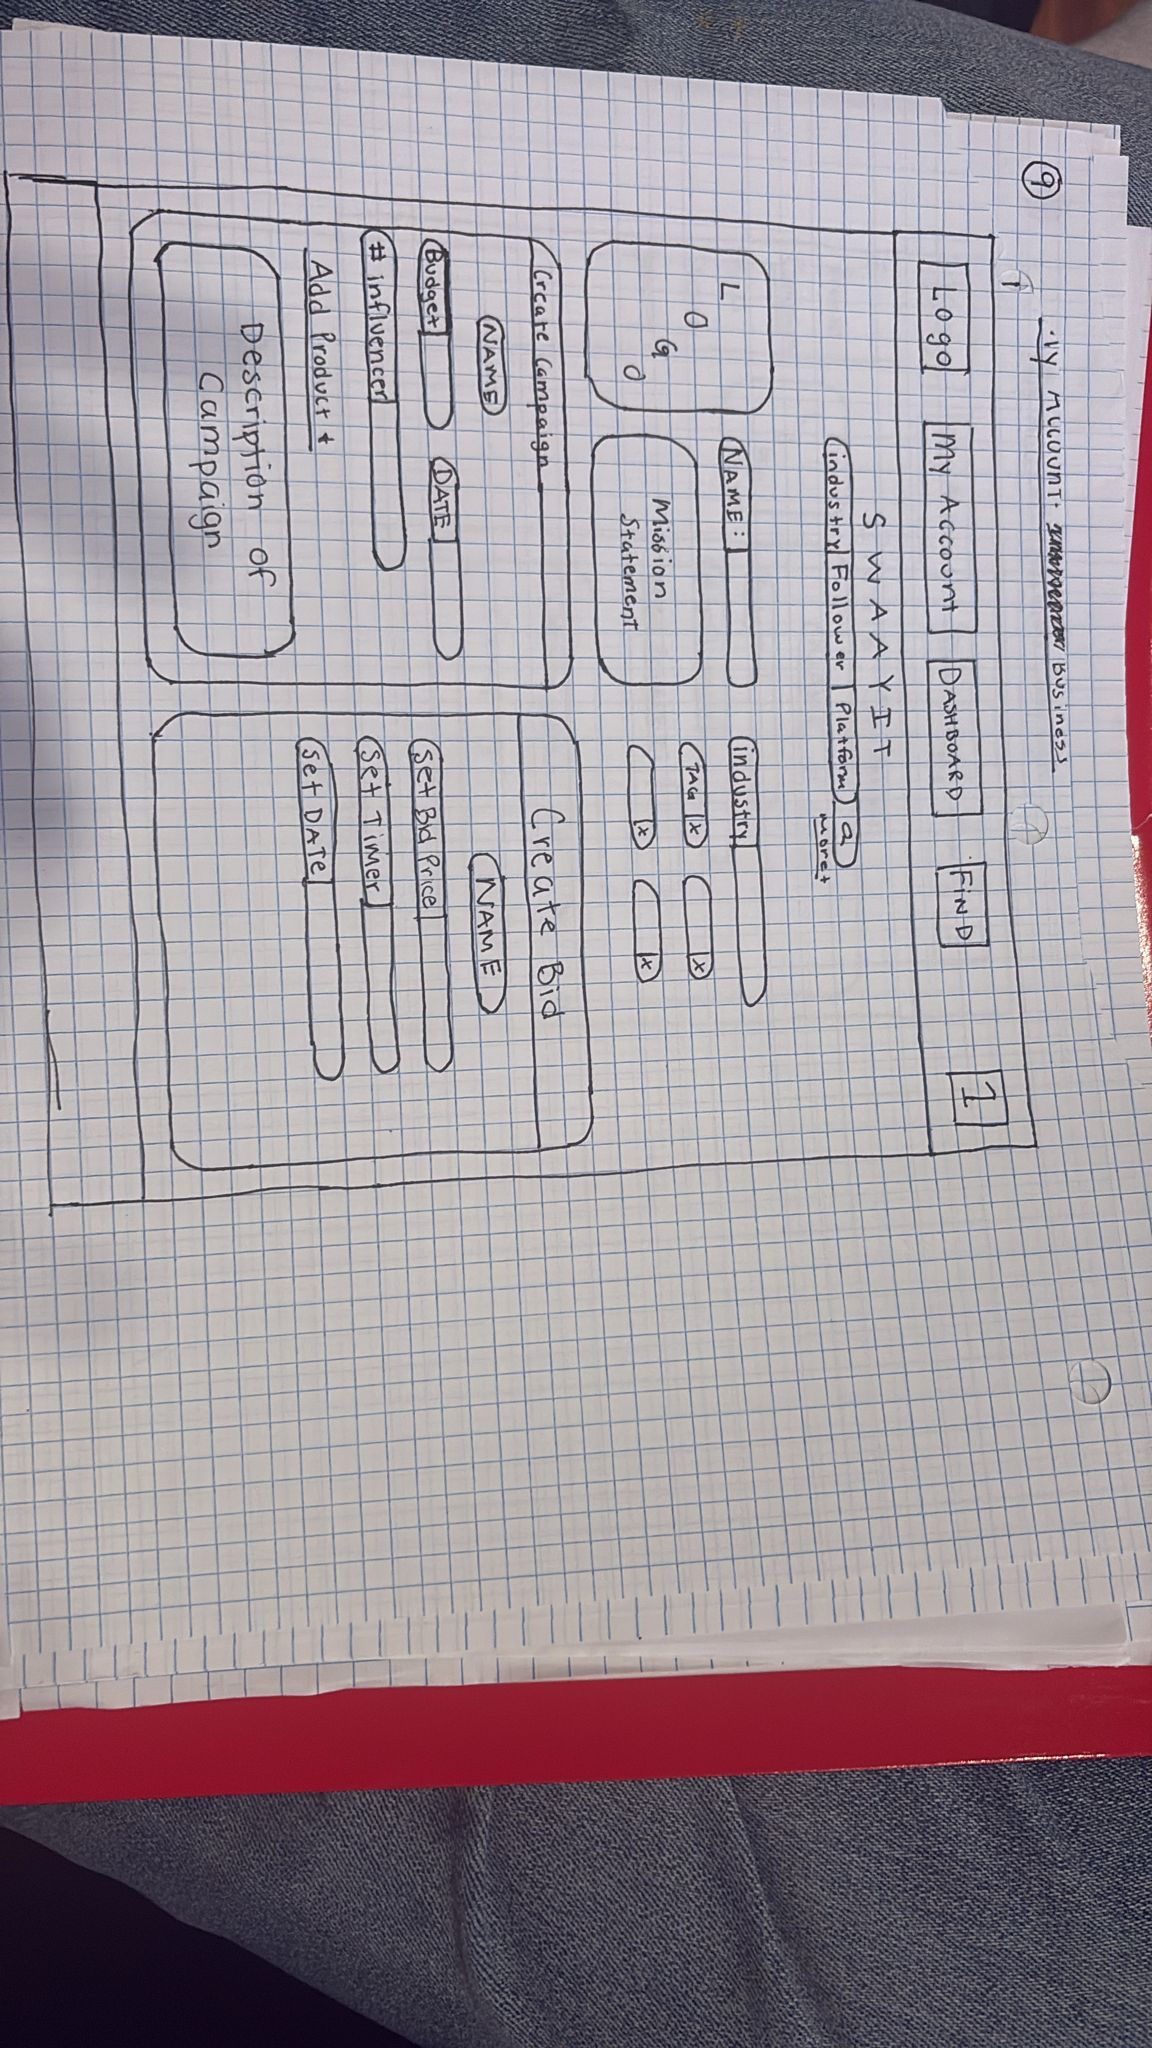 9
My Account: Business
Logo
My Account
DASHBOARD
FIND
1
SWAAYIT
industry Follower Platform Q
more+
LOGO
NAME:
industry
Mission
Statement
TAG x
x
x
x
Create Campaign
NAME
Budget
DATE
# influencer
Add Product +
Description of
Campaign
Create Bid
NAME
Set Bid Price
Set Timer
Set DATE